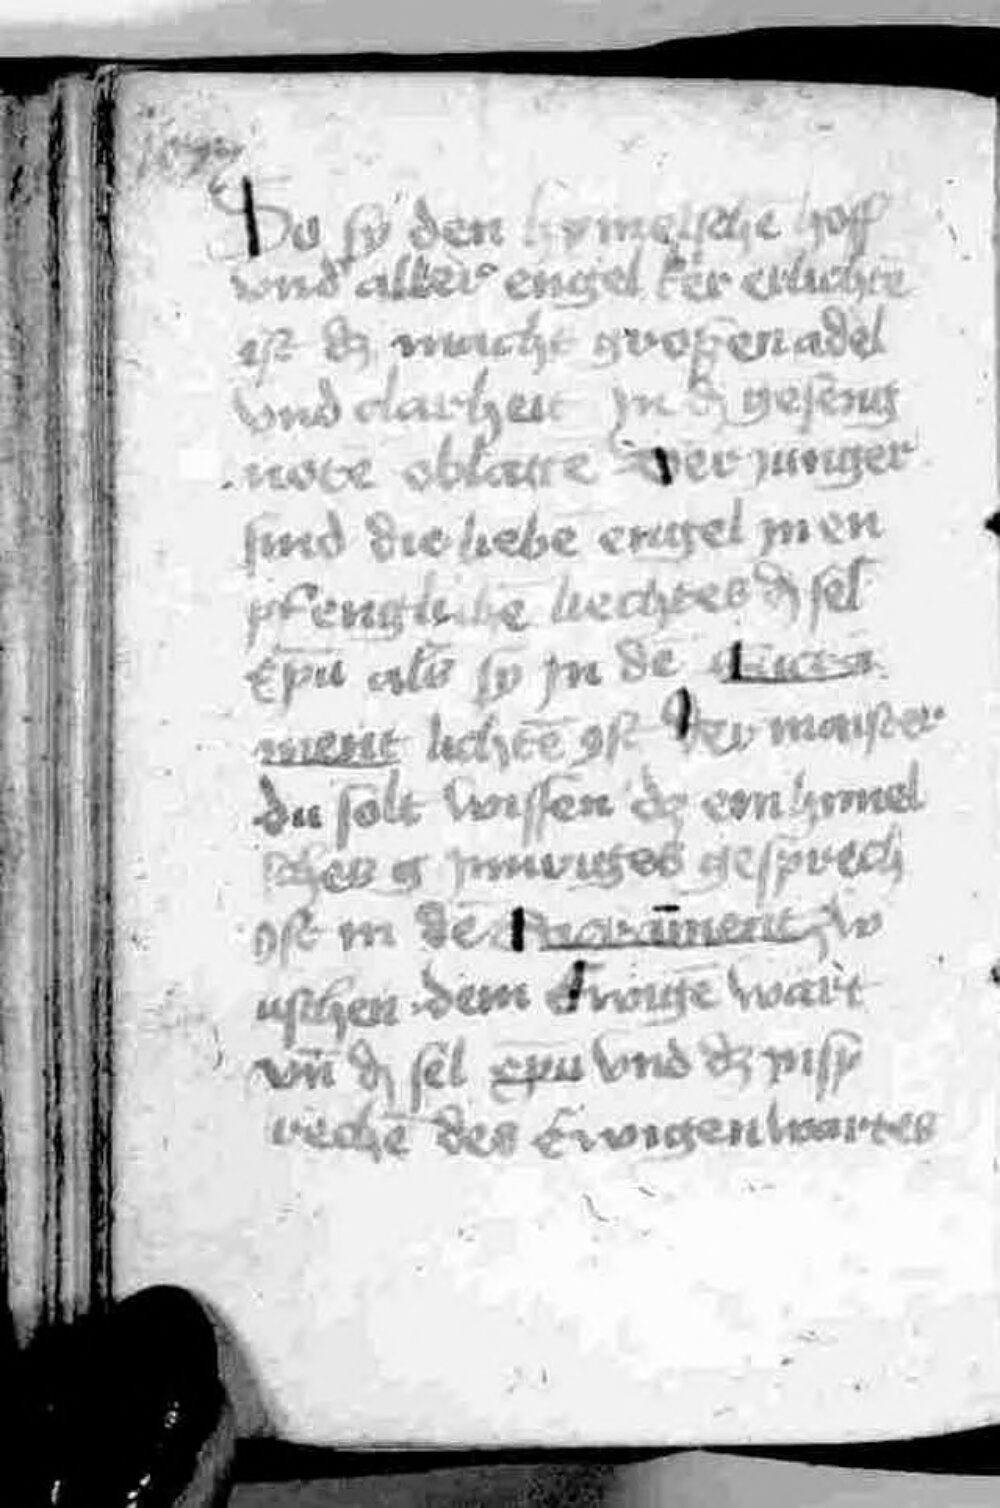 So sy den hymelsche hoff
vnd aller engel ker erluchte
ist dz macht grossen adel
vnd clarheit jn d gesenig
note oblatte der junger
sind die liebe engel jn en
pfengliche liechtes d sel
xpu als sy jn de Sacra
ment lichte yst Hey monster
du solt wissen dz ein himel
sches g ynnwiges gesprech
yst in de Sacrament zw
uschen dem Ewige wart
vn d sel xpu vnd dz jnsp
reche des Ewigen wartes